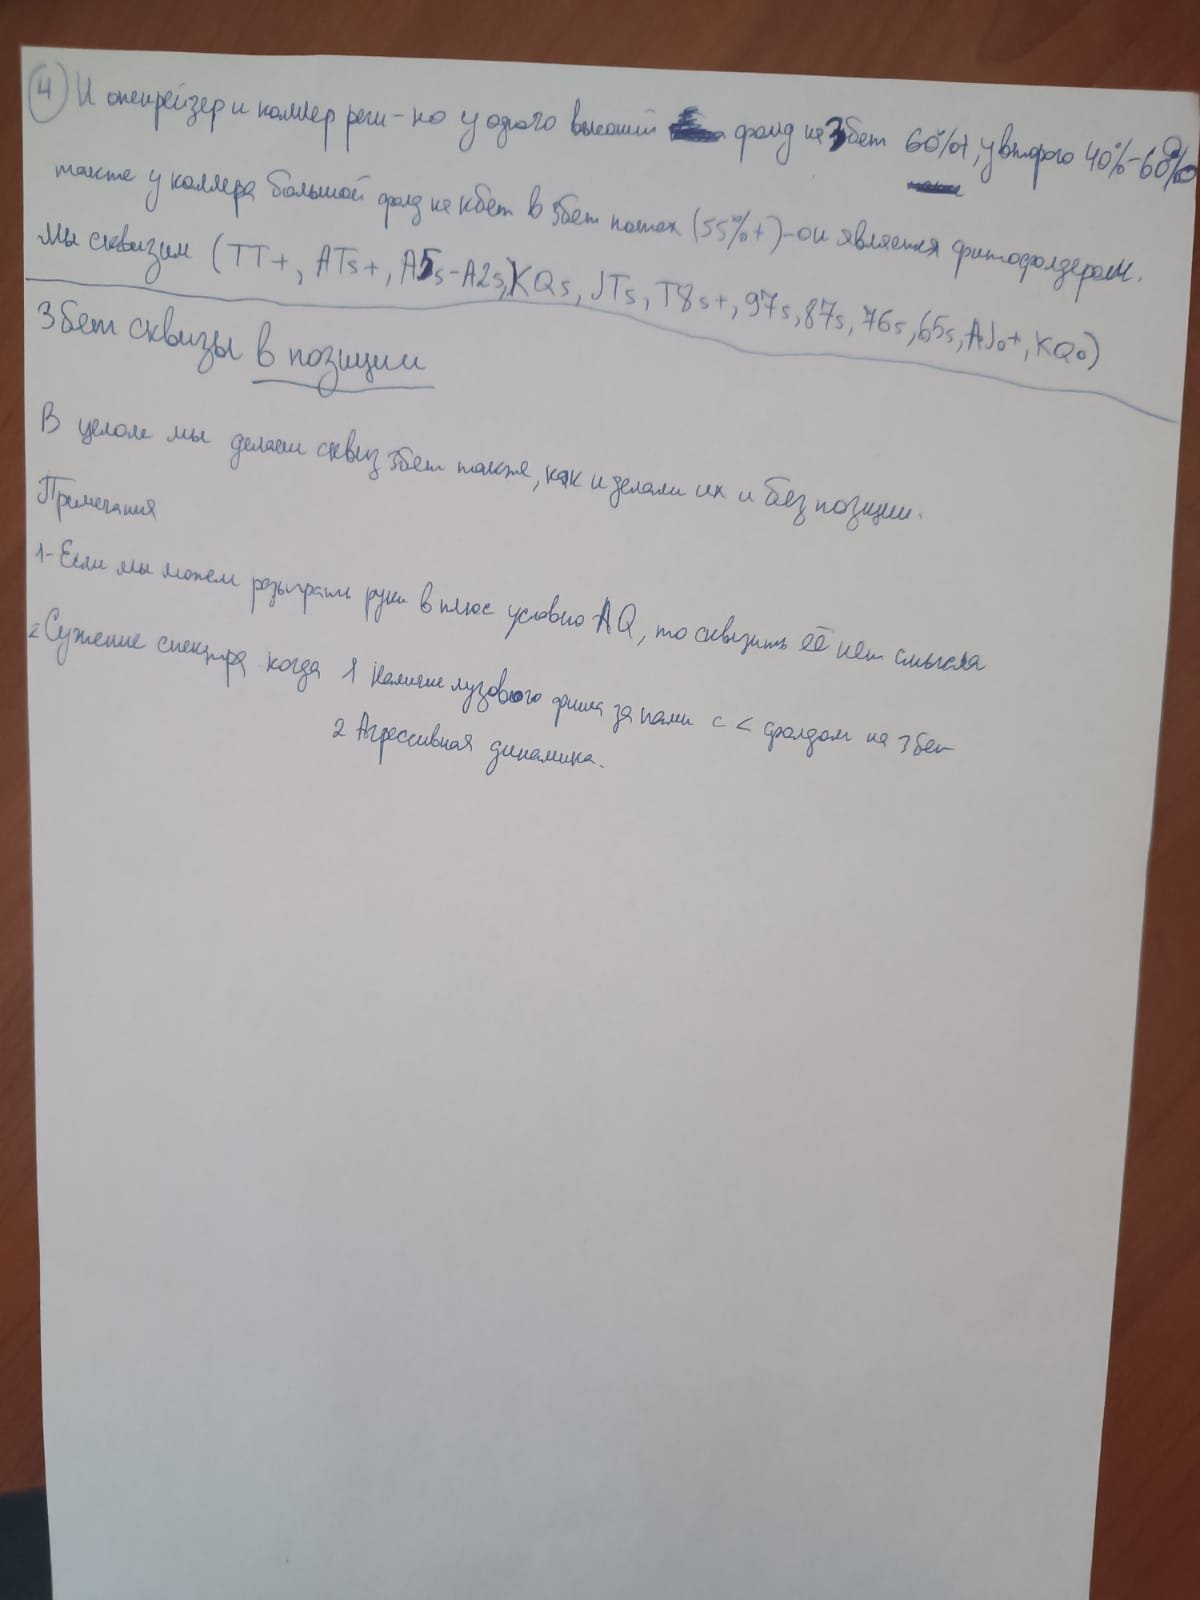 4 И опенрейзер и коллер реги - но у одного высокий фолд на 3бет 60%+, у второго 40%-60%
также у коллера большой фолд на кбет в 3бет потах (55%+) - он является фитофолдером.
Мы сквизим (TT+, ATs+, A5s-A2s, KQs, JTs, T8s+, 97s, 87s, 76s, 65s, AJo+, KQo)
3бет сквизы в позиции
В целом мы делаем сквиз 3бет также, как и делали их и без позиции.
Примечания
1- Если мы можем розыграть руки в плюс условно AQ, то сквизить её нет смысла
2 Сужение спектра когда 1 Наличие лузового фиша за нами с < фолдом на 3бет
2 Агрессивная динамика.